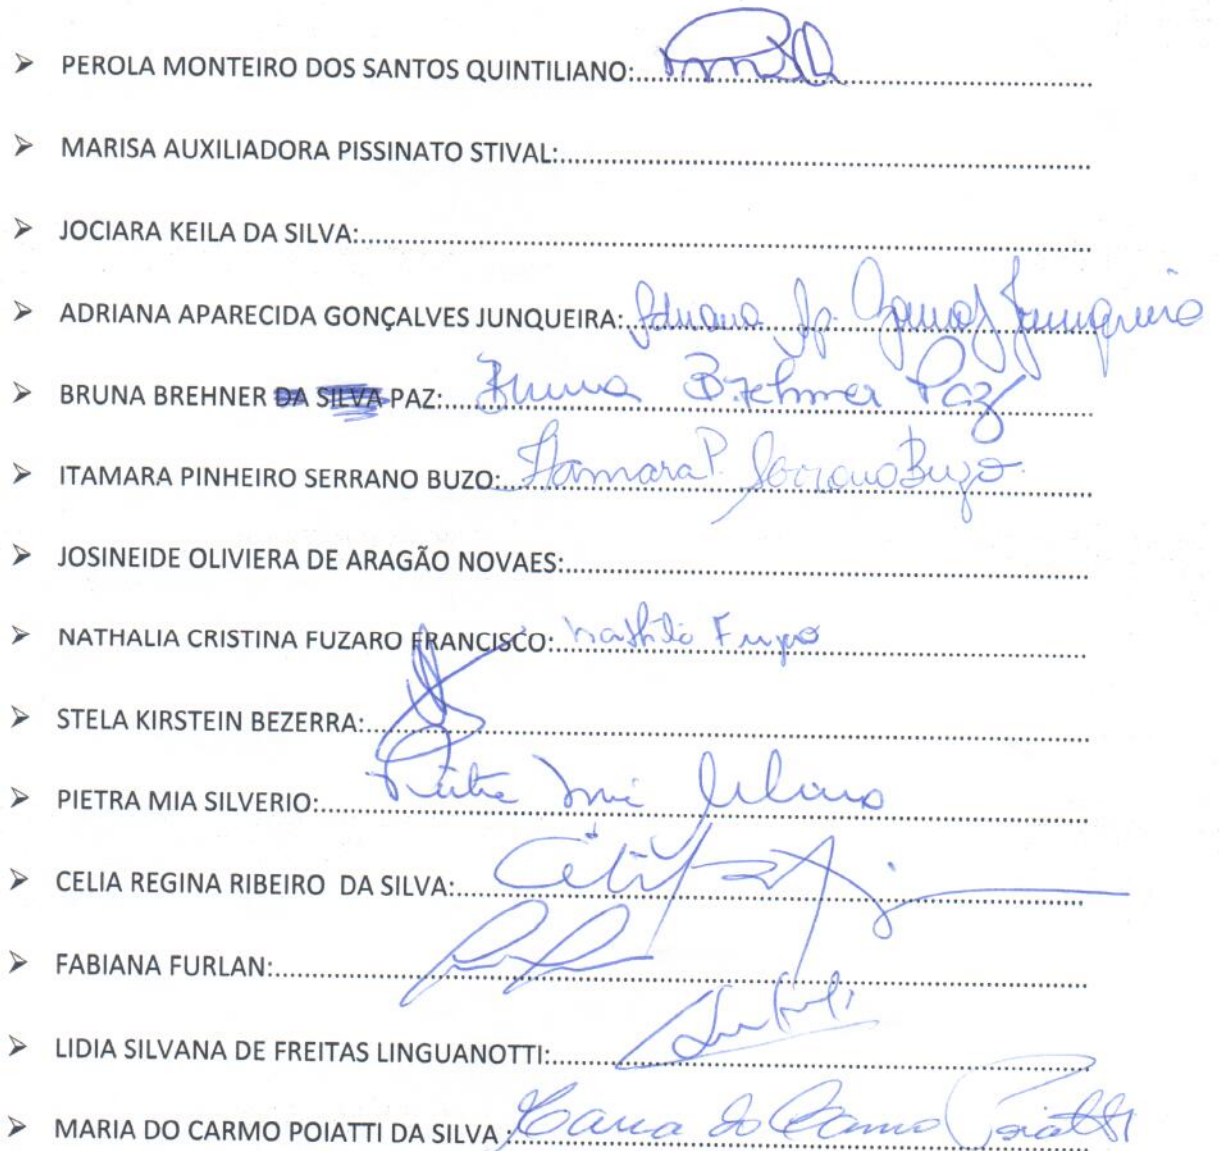 ➤ PEROLA MONTEIRO DOS SANTOS QUINTILIANO:
➤ MARISA AUXILIADORA PISSINATO STIVAL:
➤ JOCIARA KEILA DA SILVA:
➤ ADRIANA APARECIDA GONÇALVES JUNQUEIRA: Adriana Ap. Junqueira
➤ BRUNA BREHNER DA SILVA PAZ: Bruna Brehmer Paz
➤ ITAMARA PINHEIRO SERRANO BUZO: Itamara P. Serrano Buzo
➤ JOSINEIDE OLIVIERA DE ARAGÃO NOVAES:
➤ NATHALIA CRISTINA FUZARO FRANCISCO:
➤ STELA KIRSTEIN BEZERRA:
➤ PIETRA MIA SILVERIO: Pietra Mia
➤ CELIA REGINA RIBEIRO DA SILVA:
➤ FABIANA FURLAN:
➤ LIDIA SILVANA DE FREITAS LINGUANOTTI:
➤ MARIA DO CARMO POIATTI DA SILVA : Maria do Carmo Poiatti